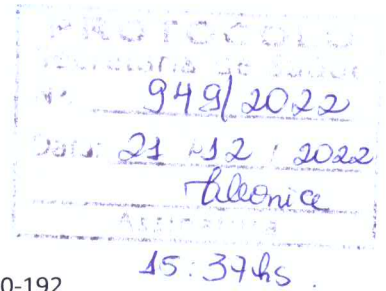 PROTOCOLO
Nº 949/2022
Data: 21 / 12 / 2022
Cleonice
ASSINATURA
15:37hs.
0-192